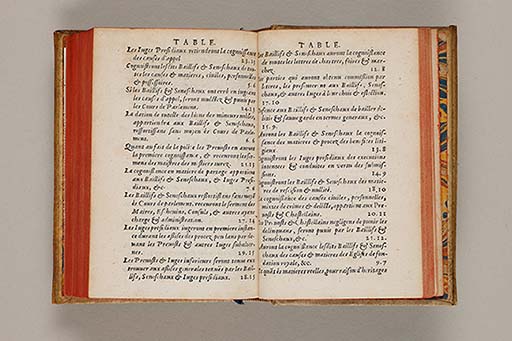 TABLE.
Les Iuges Presidiaux retiendront la cognoissance
des causes d'appel 23.15
Cognoistront lesdits Baillifs & Seneschaux de toutes
les causes & matieres, ciuiles, personnelles
& possessoires. 5.6
Si les Baillifs & Seneschaux ont erré en iugeant
les causes d'appel, seront mulctez & punis par
les Cours de Parlement. 14.12
La dation de tutelle des biens des mineurs nobles,
appartiendra aux Baillifs & Seneschaux,
ressortissans sans moyen és Cours de Parlemens.
6.6
Quand au fait de la police les Preuosts en auront
la premiere cognoissance, & receuront les sermens
des maistres des mestiers iurez. 25.13
La cognoissance en matiere de partage appartient
aux Baillifs & Seneschaux, & Iuges Presidiaux,
&c. 7.6
Les Baillifs & Seneschaux ressortissans sans moyen
és Cours de parlement, receuront le serment des
Maires, Escheuins, Consuls, & autres ayans
charge & administration. 27.14
Les Iuges presidiaux iugeront en premiere instance
durant les assises des procez pendans parde-
uant les Preuosts & autres Iuges subalternes.
29.15
Les Preuosts & Iuges inferieurs seront tenus comparoir
aux assises generales tenues par les Baillifs,
Seneschaux & Iuges presidiaux. 28.15
TABLE.
Les Baillifs & Seneschaux auront la cognoissance
de toutes les lettres de chartres, foires & marchez
12.8
parties qui auront obtenu commission par
Lettres, les presenter ou aux Baillifs, Seneschaux,
& autres Iuges à leur chois & eslection.
17.10
aux Baillifs & Seneschaux de bailler debitis
& sauuegarde en termes generaux, &c.
15.9.
Auront les Baillifs & Seneschaux la cognoissance
des matieres & procez des benefices litigieux.
13.8
Cognoistront les Iuges presidiaux des executions
intentees & conduites en vertu des submissions.
14.9
Cognoistront les Baillifs & Seneschaux des matieres
de rescision & nullité. 18.10
La cognoissance des causes ciuiles, personnelles,
mixtes & crimes & delicts, appartient aux Preuosts
& Chastellains. 20.11
Le Preuost & Chastellains negligens de punir les
delinquans, seront punis par les Baillifs &
Seneschaux, &c. 21.12.
Auront la cognoissance lesdits Baillifs & Seneschaux
des causes & matieres des Eglises de fondation
royale, &c. 9.7
matieres reelles, pour raison d'heritages